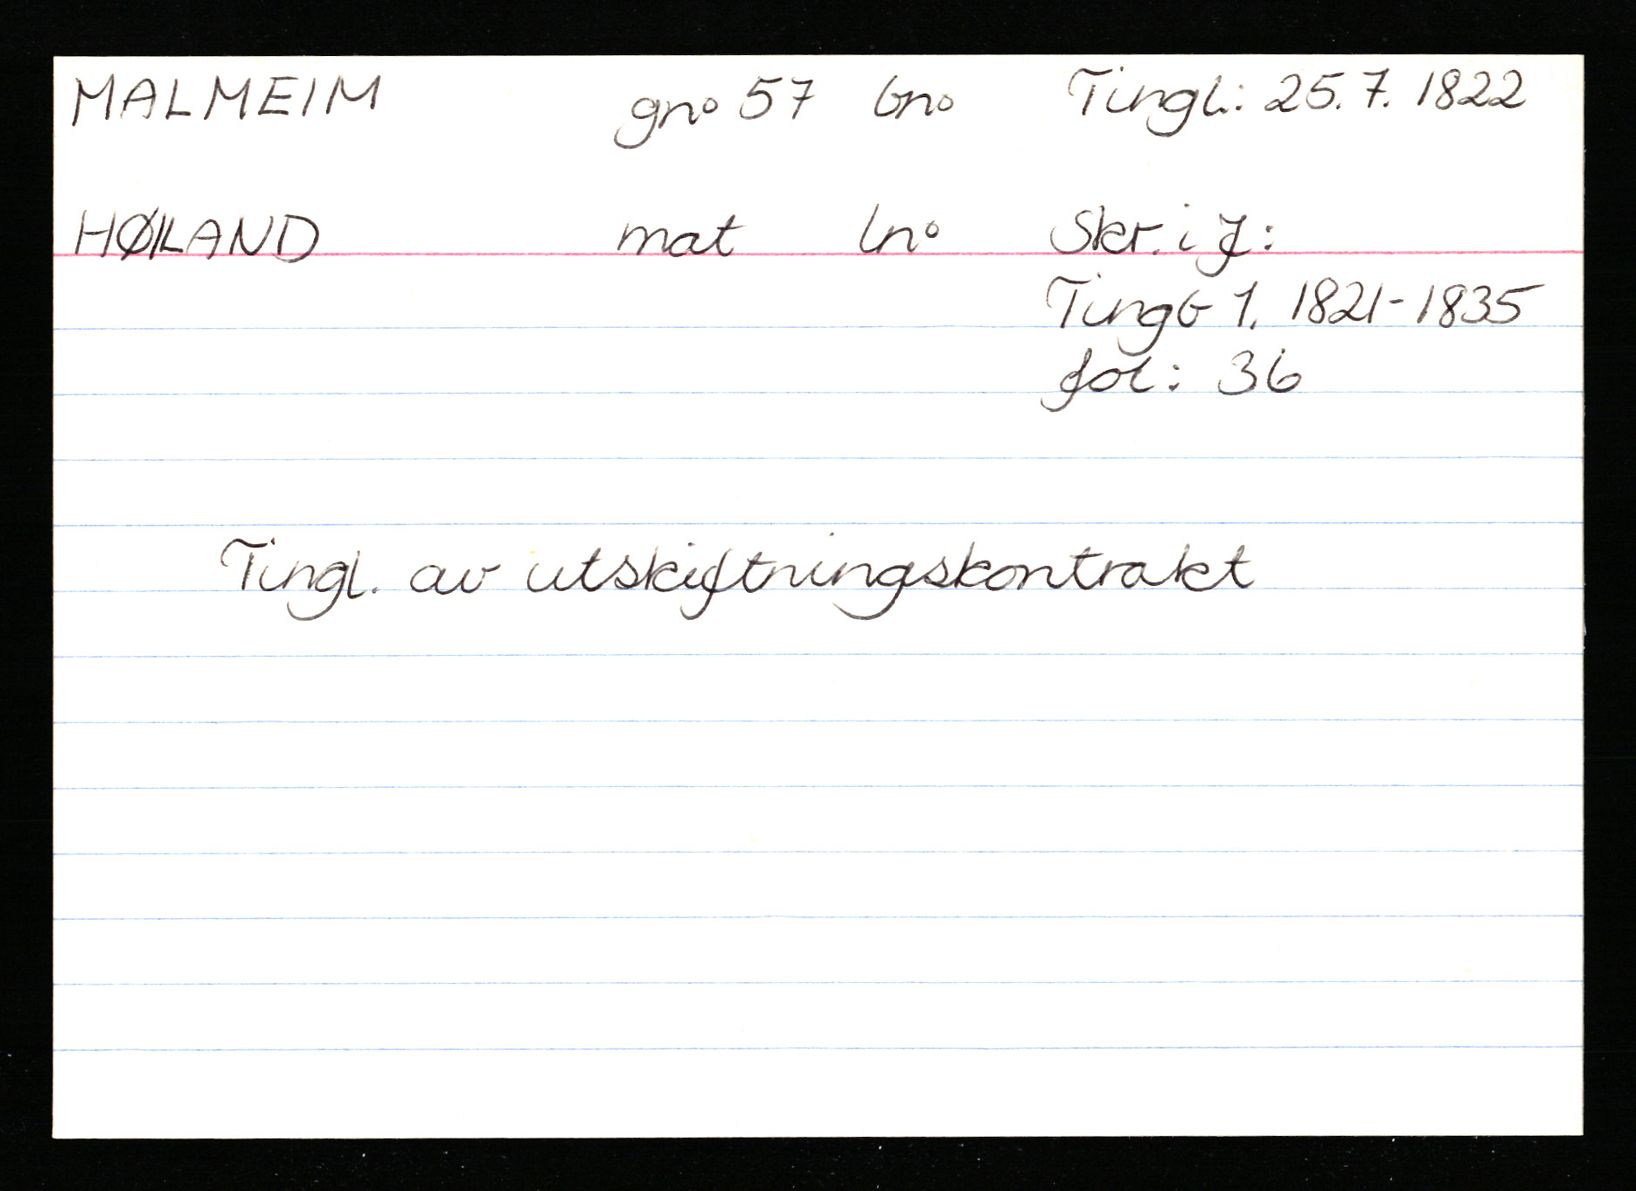 MALMEIM gno 57 bno Tingl.: 25.7. 1822
HØILAND mat lno Skr. i J:
Tingb 1. 1821-1835
fol: 36
Tingl. av utskiftningskontrakt